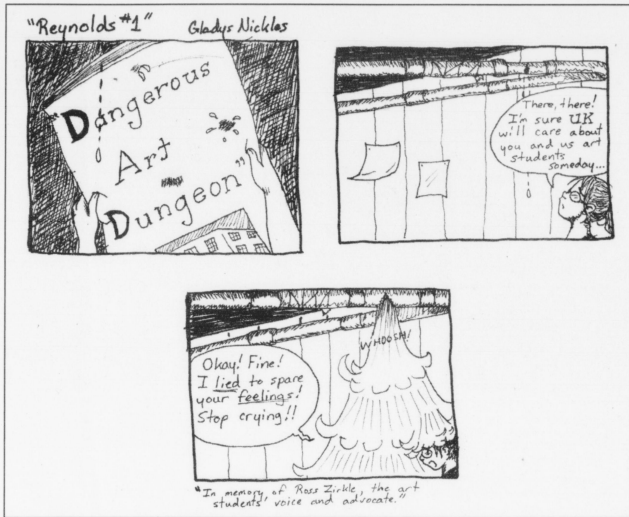 "Reynolds #1"
Gladys Nickles
"Dangerous
Art
Dungeon"
There, there!
I'm sure UK
will care about
you and us art
students
someday...
WHOOSH!
Okay! Fine!
I lied to spare
your feelings!
Stop crying!!
"In memory of Ross Zirkle, the art
students' voice and advocate."